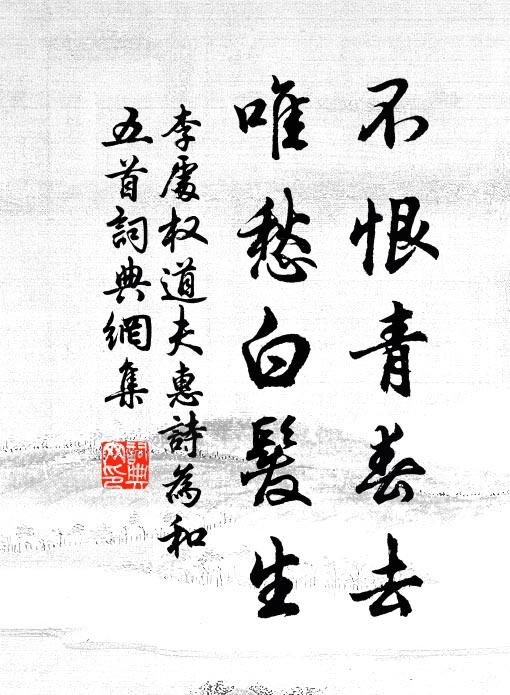 不恨青春去
唯愁白髮生
李處权道夫惠詩為和
五首詞典網集